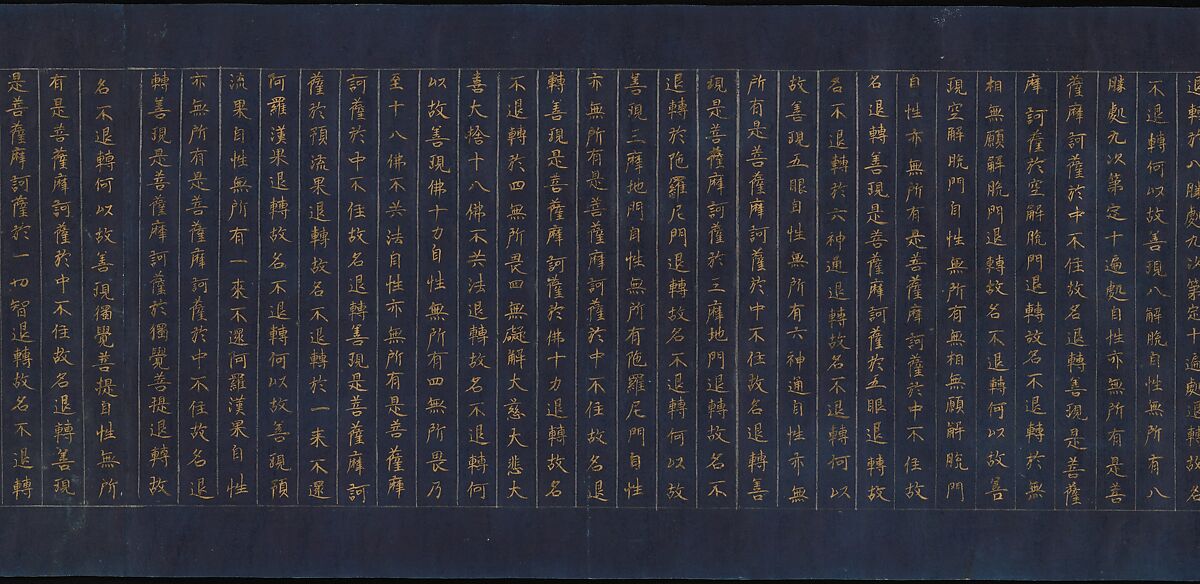 退轉於八勝處九次第定十遍處退轉故名
不退轉何以故善現八解脫自性無所有八
勝處九次第定十遍處自性亦無所有是菩
薩摩訶薩於中不住故名退轉善現是菩薩
摩訶薩於空解脫門退轉故名不退轉於無
相無願解脫門退轉故名不退轉何以故善
現空解脫門自性無所有無相無願解脫門
自性亦無所有是菩薩摩訶薩於中不住故
名退轉善現是菩薩摩訶薩於五眼退轉故
名不退轉於六神通退轉故名不退轉何以
故善現五眼自性無所有六神通自性亦無
所有是菩薩摩訶薩於中不住故名退轉善
現是菩薩摩訶薩於三摩地門退轉故名不
退轉於陀羅尼門退轉故名不退轉何以故
善現三摩地門自性無所有陀羅尼門自性
亦無所有是菩薩摩訶薩於中不住故名退
轉善現是菩薩摩訶薩於佛十力退轉故名
不退轉於四無所畏四無礙解大慈大悲大
喜大捨十八佛不共法退轉故名不退轉何
以故善現佛十力自性無所有四無所畏乃
至十八佛不共法自性亦無所有是菩薩摩
訶薩於中不住故名退轉善現是菩薩摩訶
薩於預流果退轉故名不退轉於一來不還
阿羅漢果退轉故名不退轉何以故善現預
流果自性無所有一來不還阿羅漢果自性
亦無所有是菩薩摩訶薩於中不住故名退
轉善現是菩薩摩訶薩於獨覺菩提退轉故
名不退轉何以故善現獨覺菩提自性無所
有是菩薩摩訶薩於中不住故名退轉善現
是菩薩摩訶薩於一切智退轉故名不退轉